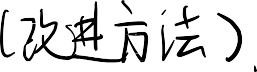 (改进方法).